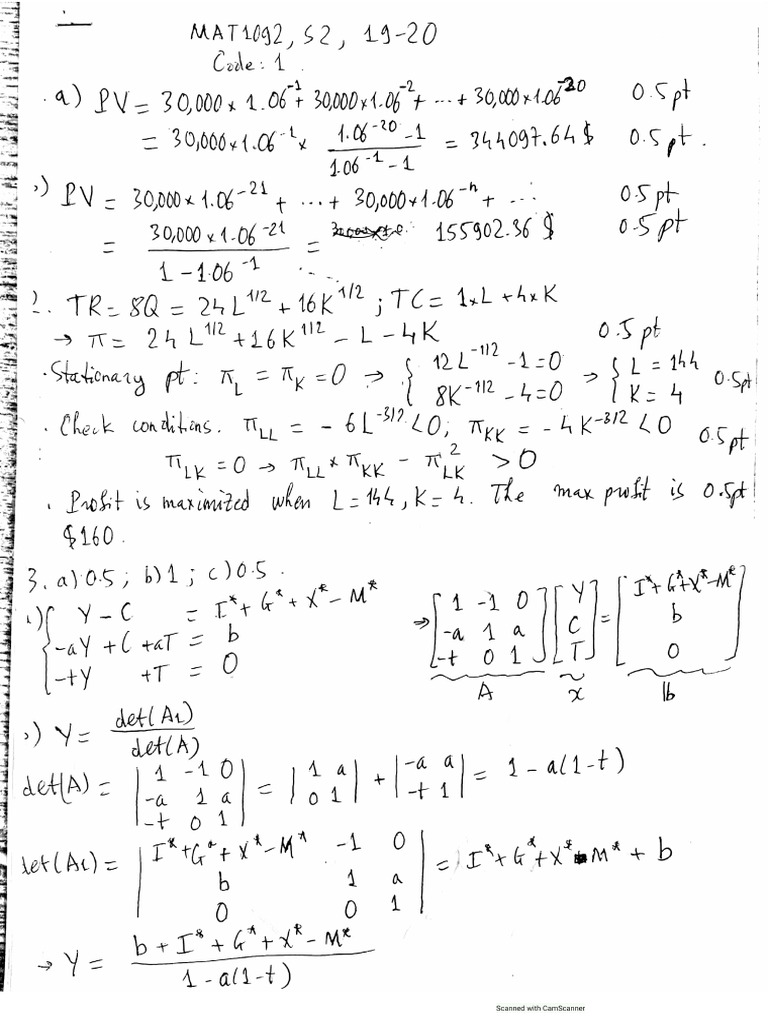 MAT1092, S2, 19-20
Code: 1.
a) PV = 30,000 × 1.06⁻¹ + 30,000 × 1.06⁻² + ... + 30,000 × 1.06⁻²⁰ 0.5 pt
= 30,000 × 1.06⁻¹ × (1.06⁻²⁰ - 1)/(1.06⁻¹ - 1) = 344097.64 $ 0.5 pt.
) PV = 30,000 × 1.06⁻²¹ + ... + 30,000 × 1.06⁻ⁿ + ... 0.5 pt
= (30,000 × 1.06⁻²¹)/(1 - 1.06⁻¹) = 155902.36 $ 0.5 pt
2. TR = 8Q = 24L^1/2 + 16K^1/2 ; TC = 1×L + 4×K
→ π = 24L^1/2 + 16K^1/2 - L - 4K 0.5 pt
· Stationary pt: π_L = π_K = 0 → { 12L^-1/2 - 1 = 0 ; 8K^-1/2 - 4 = 0 → { L = 144 ; K = 4 0.5pt
· Check conditions. π_LL = - 6L^-3/2 < 0; π_KK = - 4K^-3/2 < 0 0.5 pt
π_LK = 0 → π_LL × π_KK - π²_LK > 0
· Profit is maximized when L = 144, K = 4. The max profit is 0.5pt
$160.
3. a) 0.5 ; b) 1 ; c) 0.5.
) { Y - C = I* + G* + X* - M* → [1 -1 0] [Y] = [I* + G* + X* - M*]
-aY + C + aT = b [-a 1 a] [C] [b]
-tY + T = 0 [-t 0 1] [T] [0]
A x b
) Y = det(A1)/det(A)
det(A) = |1 -1 0; -a 1 a; -t 0 1| = |1 a; 0 1| + |-a a; -t 1| = 1 - a(1-t)
det(A1) = |I* + G* + X* - M* -1 0; b 1 a; 0 0 1| = I* + G* + X* - M* + b
→ Y = (b + I* + G* + X* - M*)/(1 - a(1-t))
Scanned with CamScanner